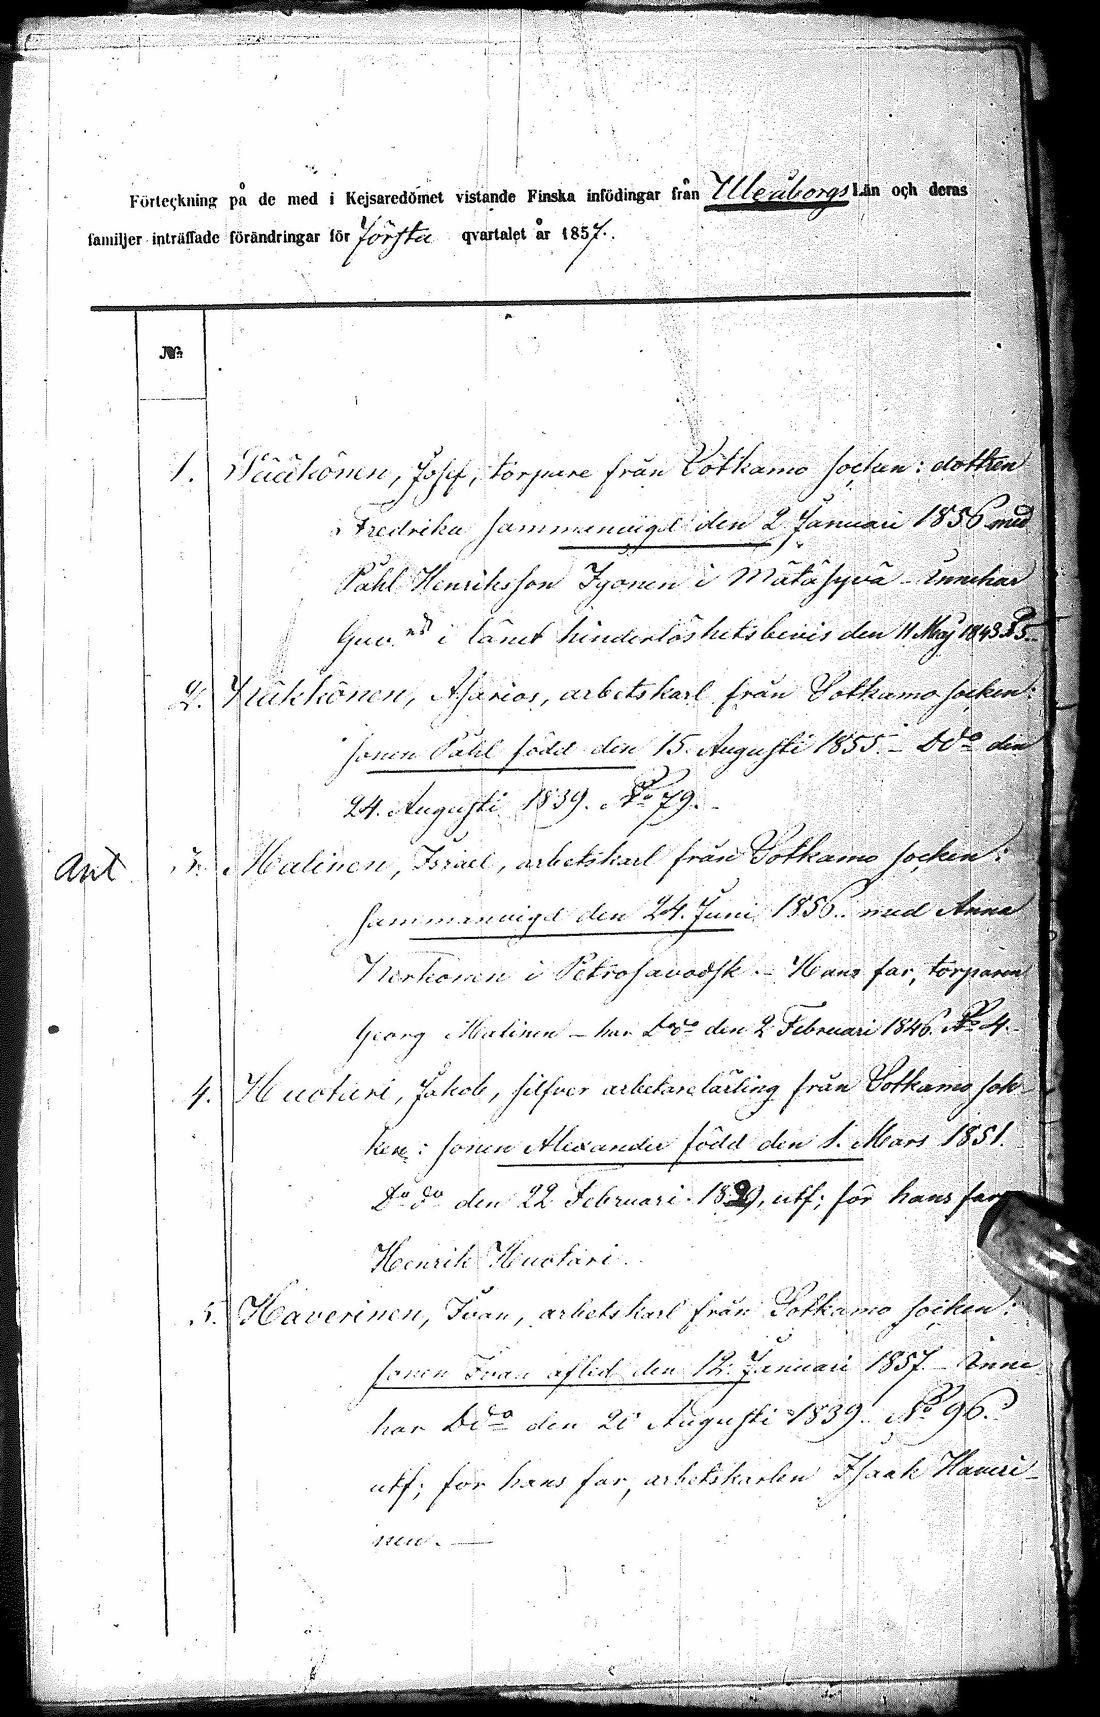 Förteckning på de med i Kejsaredömet vistande Finska infödingar från Uleåborgs Län och deras
familjer inträffade förändringar för Första qvartalet år 1857.
№
1. Pääkönen, Josef, torpare från Sotkamo socken: dottren
Fredrika sammanvigd den 2 Januari 1856 med
Påhl Henriksson Tyonen i Mätäsyvä - Innehar
Guv. i länet hinderlöshetsbevis den 11 Maj 1843
2. Kükkönen, Asarios, arbetskarl från Sotkamo socken:
sonen Påhl född den 15. Augusti 1855. - Ddo den
24. Augusti 1839. No 79.
Ant 3. Malinen, Israel, arbetskarl från Sotkamo socken:
sammanvigd den 24. Juni 1856. med Anna
Kerkonen i Petrosavodsk. - Hans far, torparen
Georg Malinen - har Dodo den 2 Februari 1846. No 4.
4. Huotari, Jakob, silfver arbetarelärling från Sotkamo sok-
ken: sonen Alexander född den 1. Mars 1851.
Do do den 22 Februari 1829, utf; för hans far
Henrik Huotari.
5. Haverinen, Ivan, arbetskarl från Sotkamo socken:
sonen Ivan afled den 12. Januari 1857 - Inne
har Ddo den 20 Augusti 1839. No 96.
utf; för hans far, arbetskarlen Isaak Haveri-
nen. —